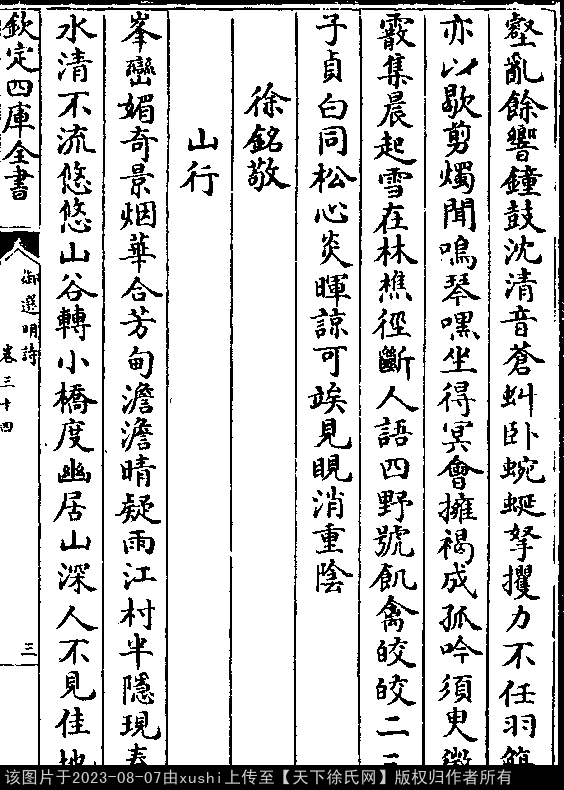 壑亂餘響鐘鼓沈清音蒼虬卧蜿蜒拏攫力不任羽
亦以歇剪燭聞鳴琴嘿坐得冥會擁褐成孤吟須臾
霰集晨起雪在林樵徑斷人語四野號飢禽皎皎二
子貞白同松心炎暉諒可竢見晛消重陰
徐銘敬
山行
峯巒媚奇景烟華合芳甸澹澹晴疑雨江村半隱現春
水清不流悠悠山谷轉小橋度幽居山深人不見佳地
欽定四庫全書
御選明詩
卷三十四
三
该图片于2023-08-07由xushi上传至【天下徐氏网】版权归作者所有